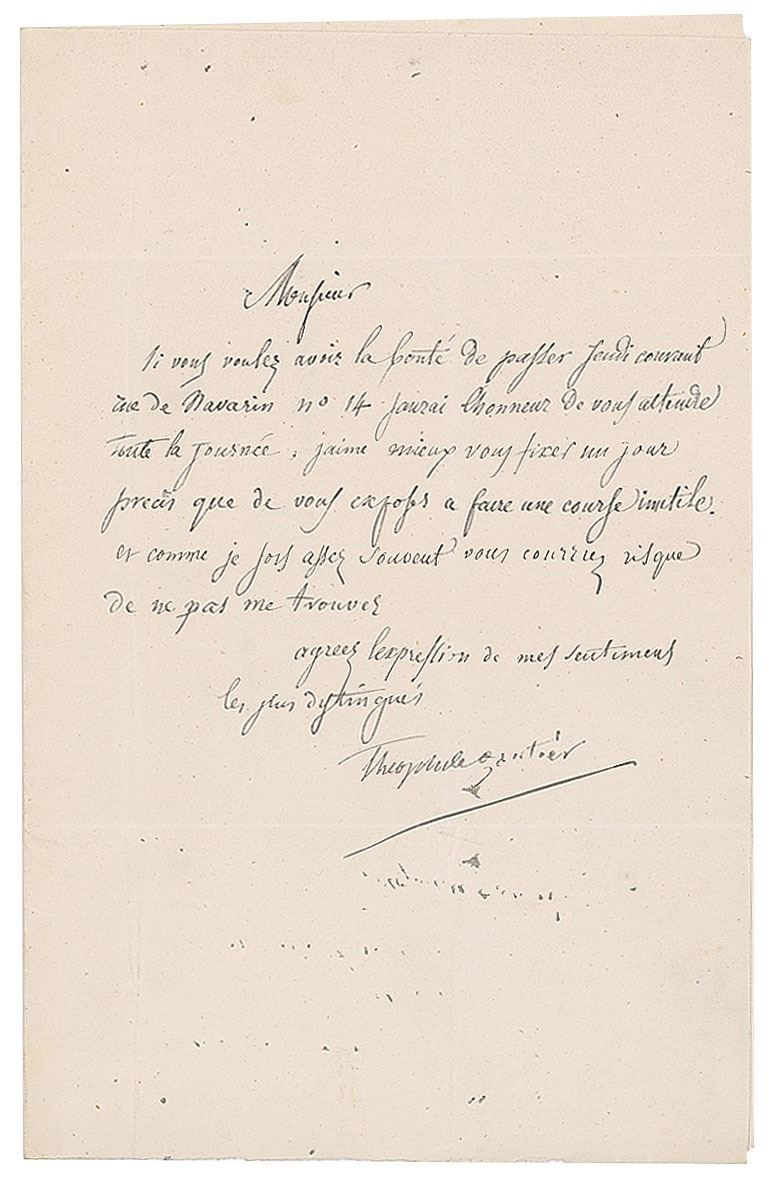 Monsieur
Si vous voulez avoir la bonté de passer Jeudi courant
rue de Navarin nº 14 Jaurai lhonneur de vous attendre
toute la journée, jaime mieux vous fixer un jour
precis que de vous exposer a faire une course inutile.
et comme je sors assez souvent vous courriez risque
de ne pas me trouver
agreez lexpression de mes sentimens
les plus distingués
Theophile Gautier